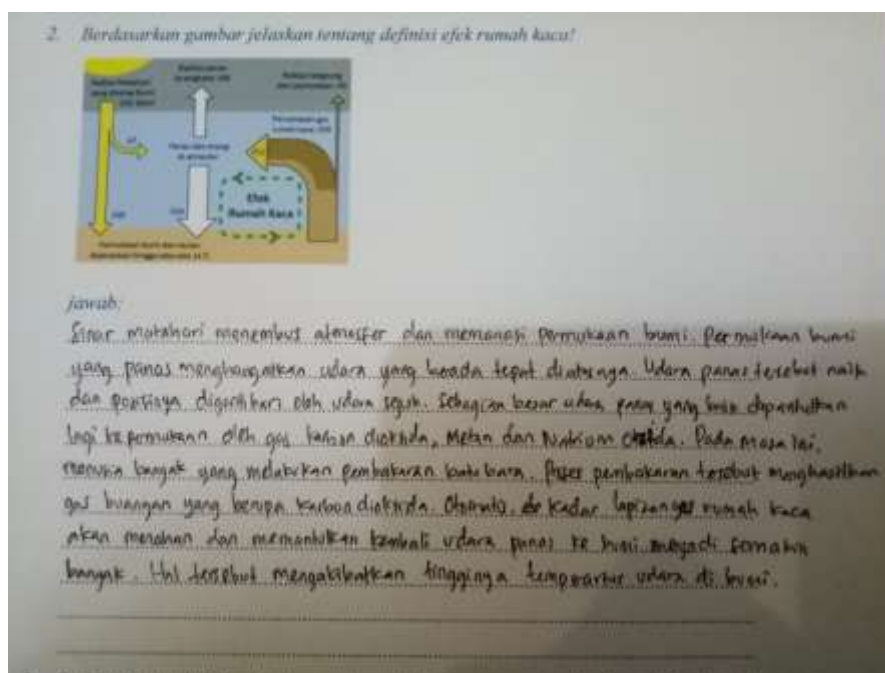 2. Berdasarkan gambar jelaskan tentang definisi efek rumah kaca!
Efek
Rumah Kaca
jawab:
Sinar matahari menembus atmosfer dan memanasi permukaan bumi. Permukaan bumi
yang panas menghangatkan udara yang berada tepat diatasnya. Udara panas tersebut naik
dan posisinya digantikan oleh udara sejuk. Sebagian besar udara panas yang naik dipantulkan
lagi ke permukaan oleh gas karbon dioksida, Metan dan. Pada masa lai,
manusia banyak yang melakukan pembakaran batu bara. Proses pembakaran tersebut menghasilkan
gas buangan yang berupa karbondioksida. Otomatis, kadar lapisan gas rumah kaca
akan menahan dan memantulkan kembali udara panas ke bumi menjadi semakin
banyak. Hal tersebut mengakibatkan tingginya temperartur udara di bumi.